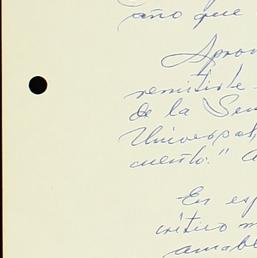 año que
Aprov
remitirle
de la Sem
Universal
cuento." A
En esp
crítico m
amabl